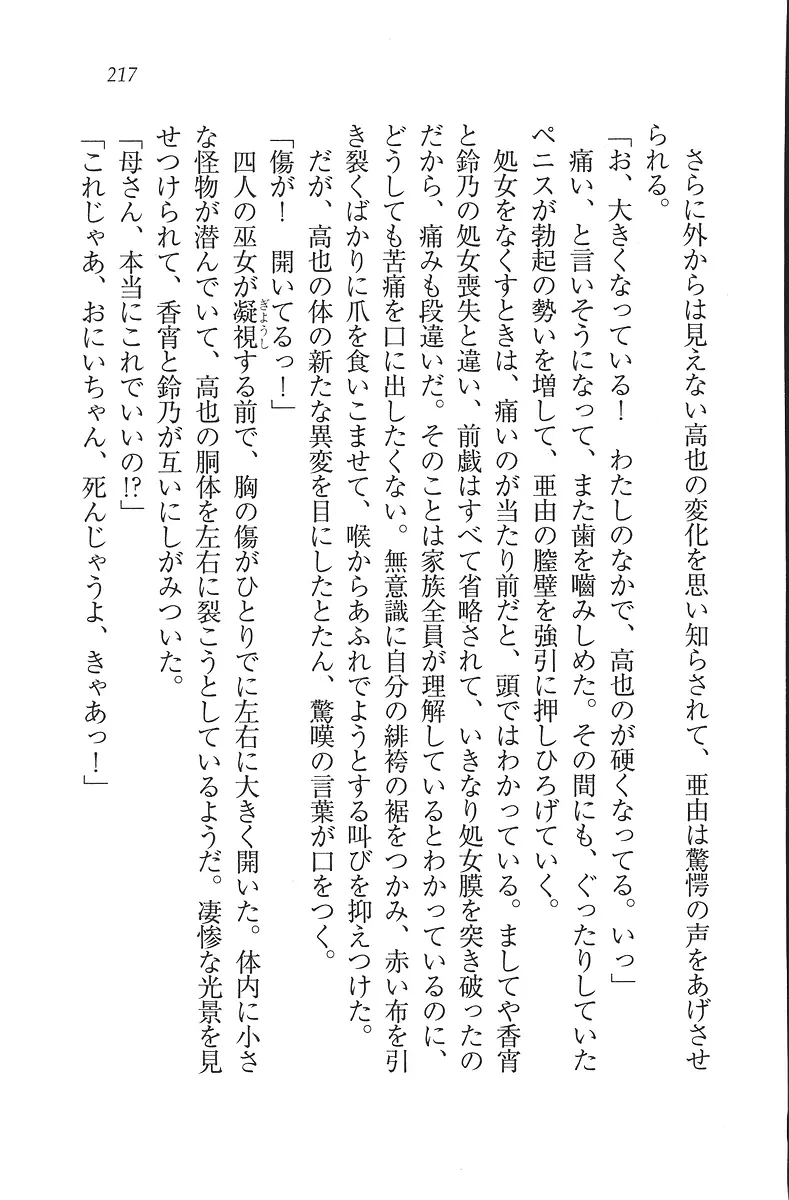 217
さらに外からは見えない高也の変化を思い知らされて、亜由は驚愕の声をあげさせ
られる。
「お、大きくなっている！　わたしのなかで、高也のが硬くなってる。いっ」
痛い、と言いそうになって、また歯を嚙みしめた。その間にも、ぐったりしていた
ペニスが勃起の勢いを増して、亜由の膣壁を強引に押しひろげていく。
処女をなくすときは、痛いのが当たり前だと、頭ではわかっている。ましてや香宵
と鈴乃の処女喪失と違い、前戯はすべて省略されて、いきなり処女膜を突き破ったの
だから、痛みも段違いだ。そのことは家族全員が理解しているとわかっているのに、
どうしても苦痛を口に出したくない。無意識に自分の緋袴の裾をつかみ、赤い布を引
き裂くばかりに爪を食いこませて、喉からあふれでようとする叫びを抑えつけた。
だが、高也の体の新たな異変を目にしたとたん、驚嘆の言葉が口をつく。
「傷が！　開いてるっ！」
四人の巫女が凝視ぎょうしする前で、胸の傷がひとりでに左右に大きく開いた。体内に小さ
な怪物が潜んでいて、高也の胴体を左右に裂こうとしているようだ。凄惨な光景を見
せつけられて、香宵と鈴乃が互いにしがみついた。
「母さん、本当にこれでいいの!?」
「これじゃあ、おにいちゃん、死んじゃうよ、きゃあっ！」